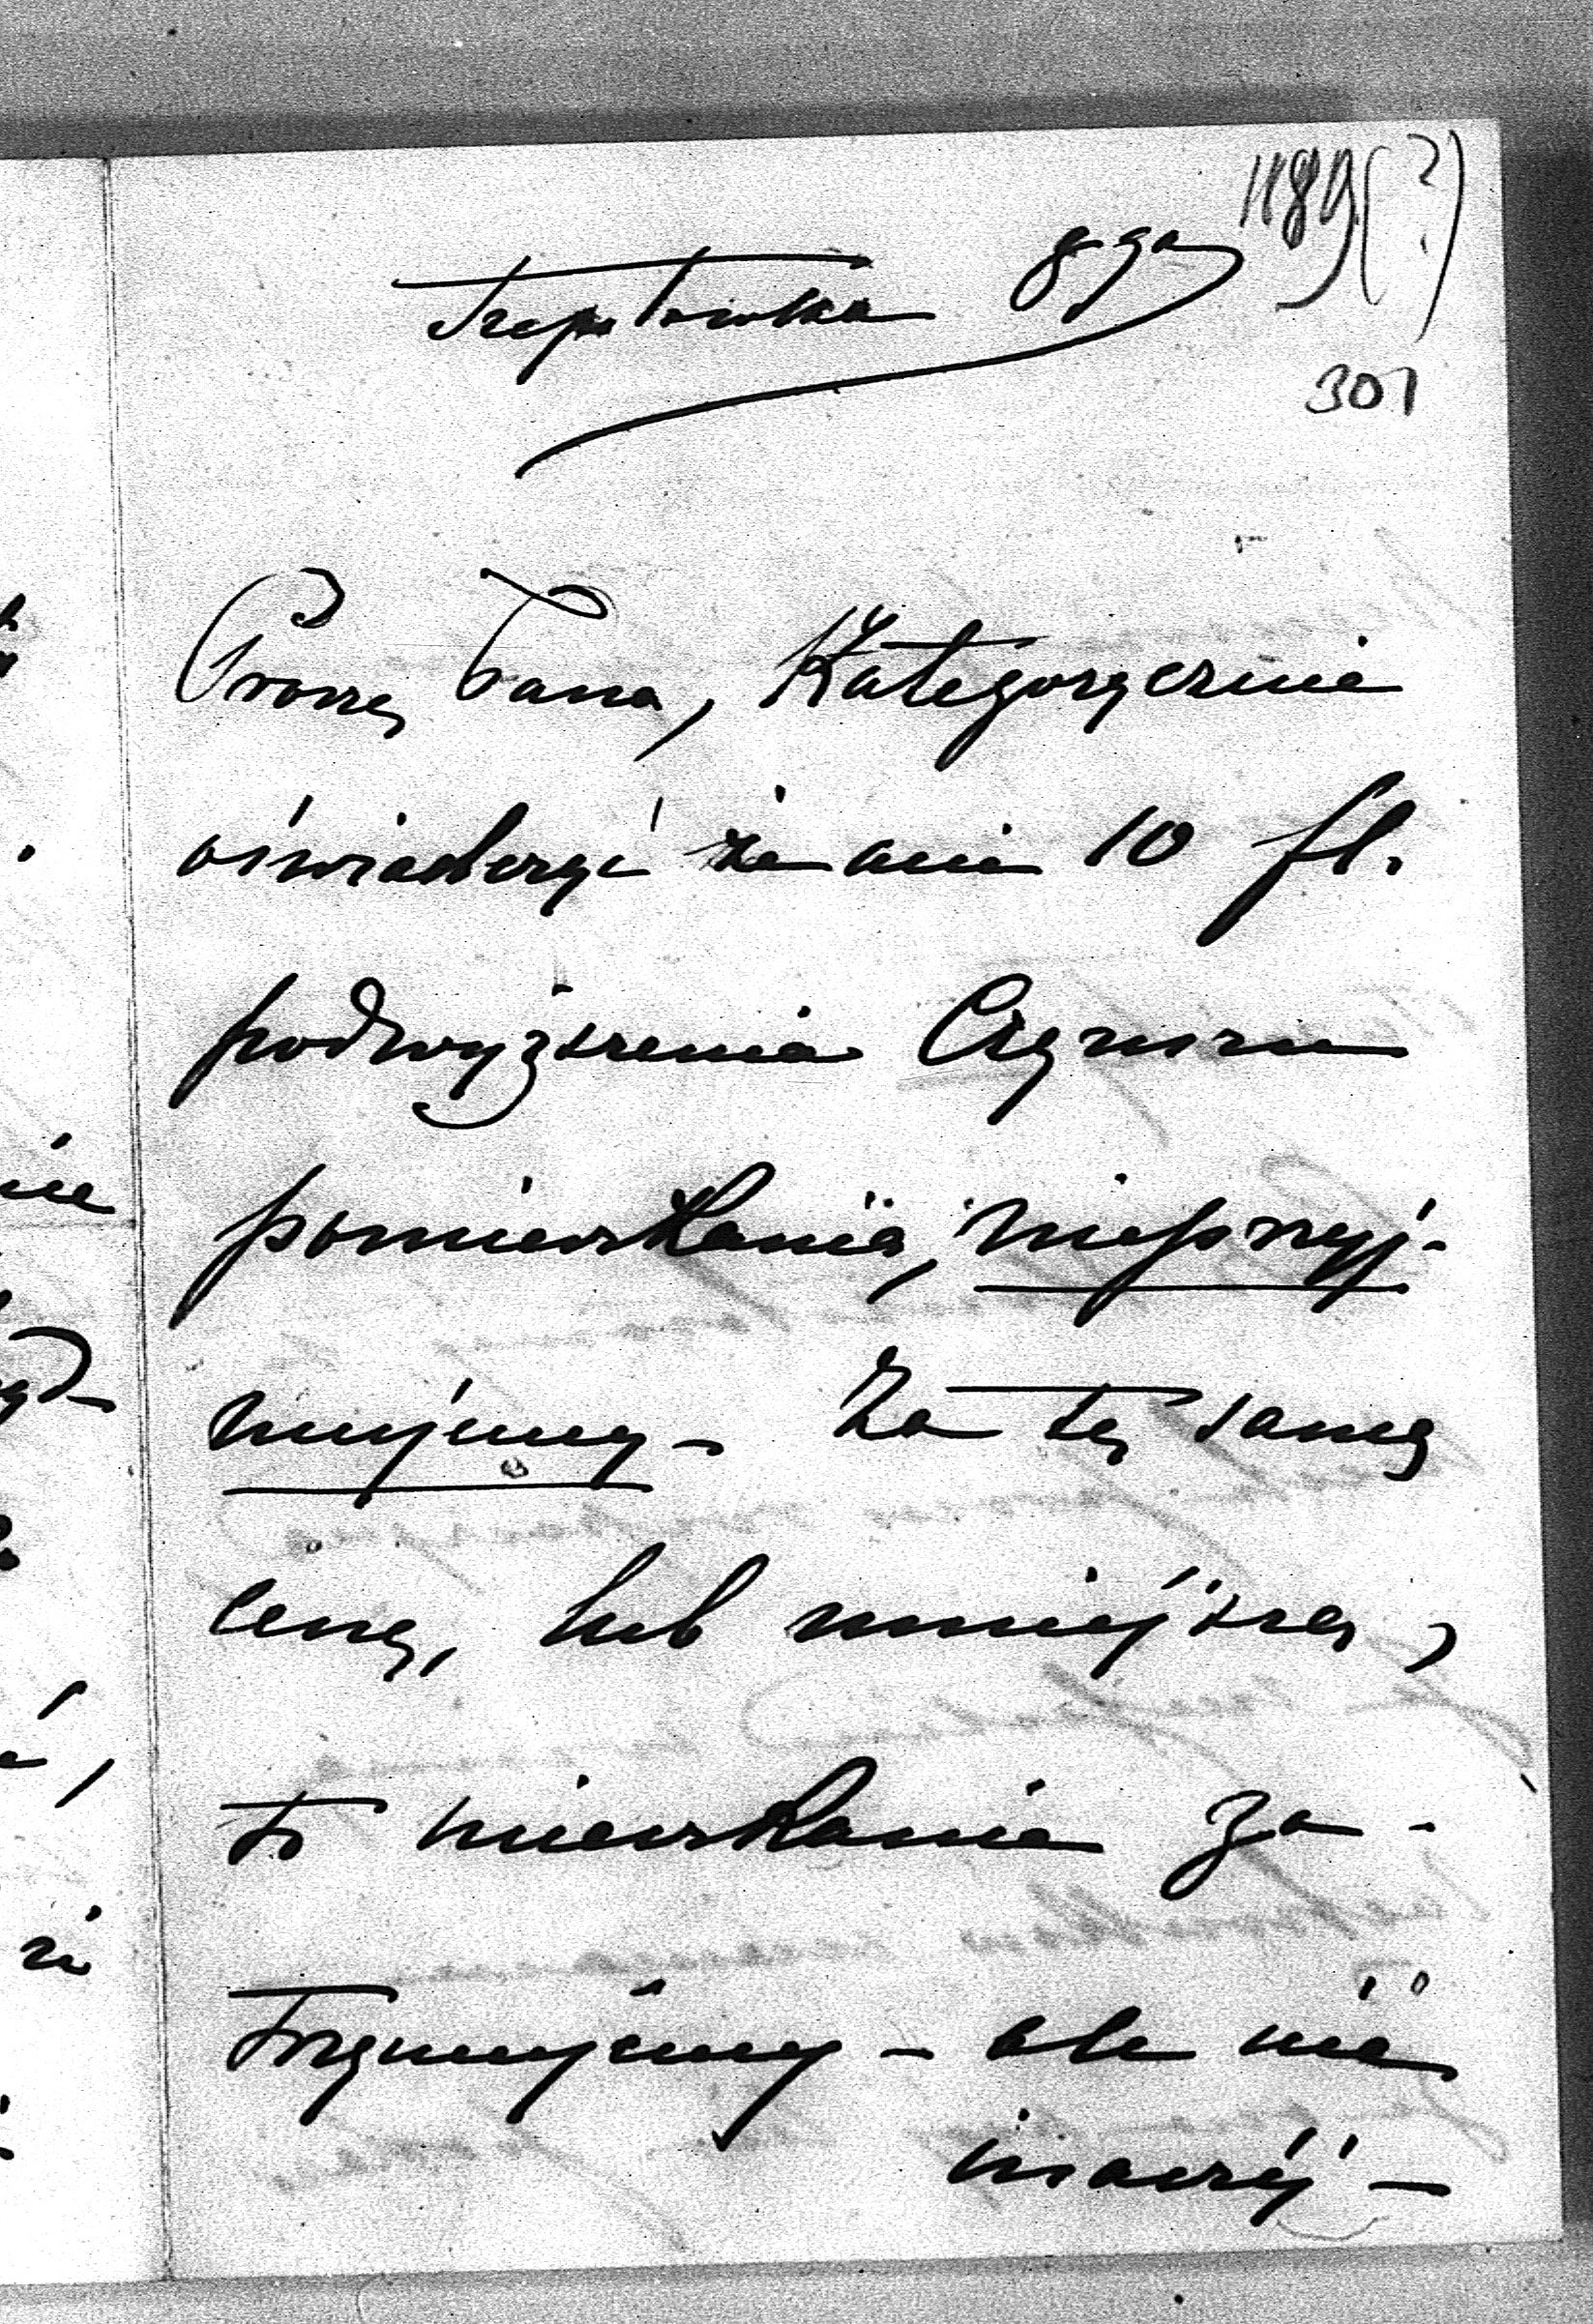 1189(?)
Szeptowska 8go
301
Proszę Pana, Kategorycznie
oświadczyć że ani 10 fl.
podwyższenia Czynszu
pomieszkania, nieprzyj-
mujemy – Za tę samą
cenę, lub mniejszą,
to mieszkanie za-
trzymujemy – ale nie
inaczéj –